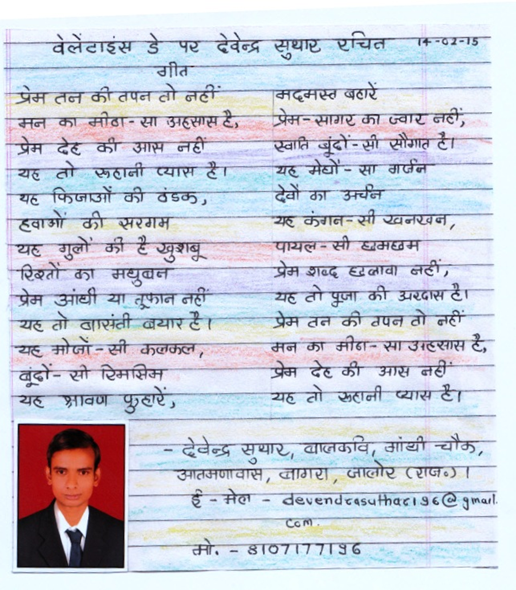 वेलेंटाइंस डे पर देवेन्द्र सुथार रचित 14-02-15
गीत
प्रेम तन की तपन तो नहीं
मन का मीठा-सा अहसास है,
प्रेम देह की आस नहीं
यह तो रूहानी प्यास है।
यह फिजाओं की ठंडक,
हवाओं की सरगम
यह गुलों की है खुशबू
रिश्तों का मधुबन
प्रेम आंधी या तूफान नहीं
यह तो बासंती बयार है।
यह मोजों-सी कलकल,
बूंदों-सी रिमझिम
यह श्रावण फुहारें,
मदमस्त बहारें
प्रेम-सागर का ज्वार नहीं,
स्वाति बूंदों-सी सौगात है।
यह मेघों-सा गर्जन
देवों का अर्चन
यह कंगन-सी खनखन,
पायल-सी छमछम
प्रेम शब्द छलावा नहीं,
यह तो पुजा की अरदास है।
प्रेम तन की तपन तो नहीं
मन का मीठा-सा अहसास है,
प्रेम देह की आस नहीं
यह तो रूहानी प्यास है।
- देवेन्द्र सुथार, बालकवि, गांधी चौक,
आतमणावास, बागरा, जालोर (राज०)।
ई-मेल - devendrasuthar196@gmail.
com.
मो. - 8107177196